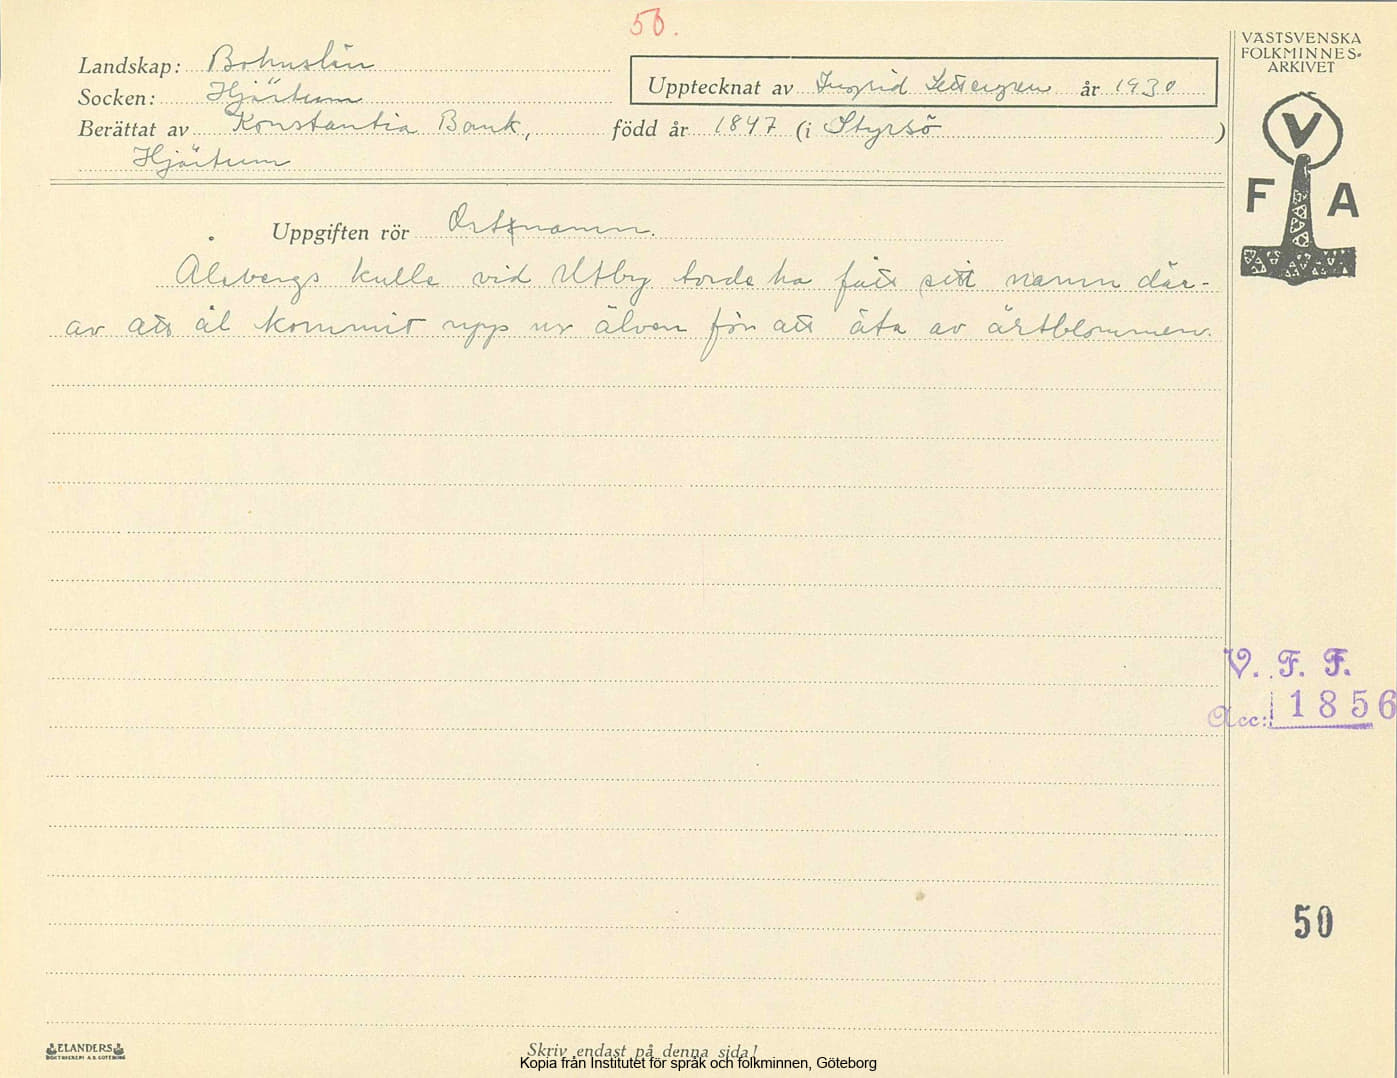 50.
Landskap: Bohuslän
Socken: Hjärtum
Upptecknat av Ingrid Settergren år 1930
Berättat av Konstantia Bank, född år 1847 (i Styrsö )
Hjärtum
VÄSTSVENSKA
FOLKMINNES-
ARKIVET
V
F A
Uppgiften rör Ortnamn.
Ålebergs kulle vid Utby torde ha fått sitt namn där-
av att ål kommit upp ur älven för att äta av ärtblommen.
V. F. F.
Acc: 1856
50
ELANDERS
BOKTRYCKERI A.B. GÖTEBORG
Skriv endast på denna sida!
Kopia från Institutet för språk och folkminnen, Göteborg